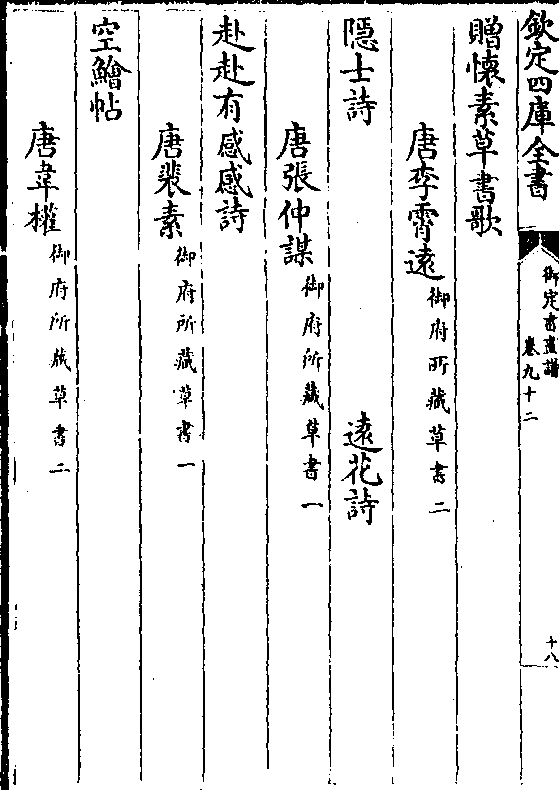 欽定四庫全書
御定書畫譜
卷九十二
十八
贈懷素草書歌
唐李霄遠御府所藏草書二
隱士詩 遠花詩
唐張仲謀御府所藏草書一
赴赴有感感詩
唐裴素御府所藏草書一
空鱠帖
唐韋權御府所藏草書二